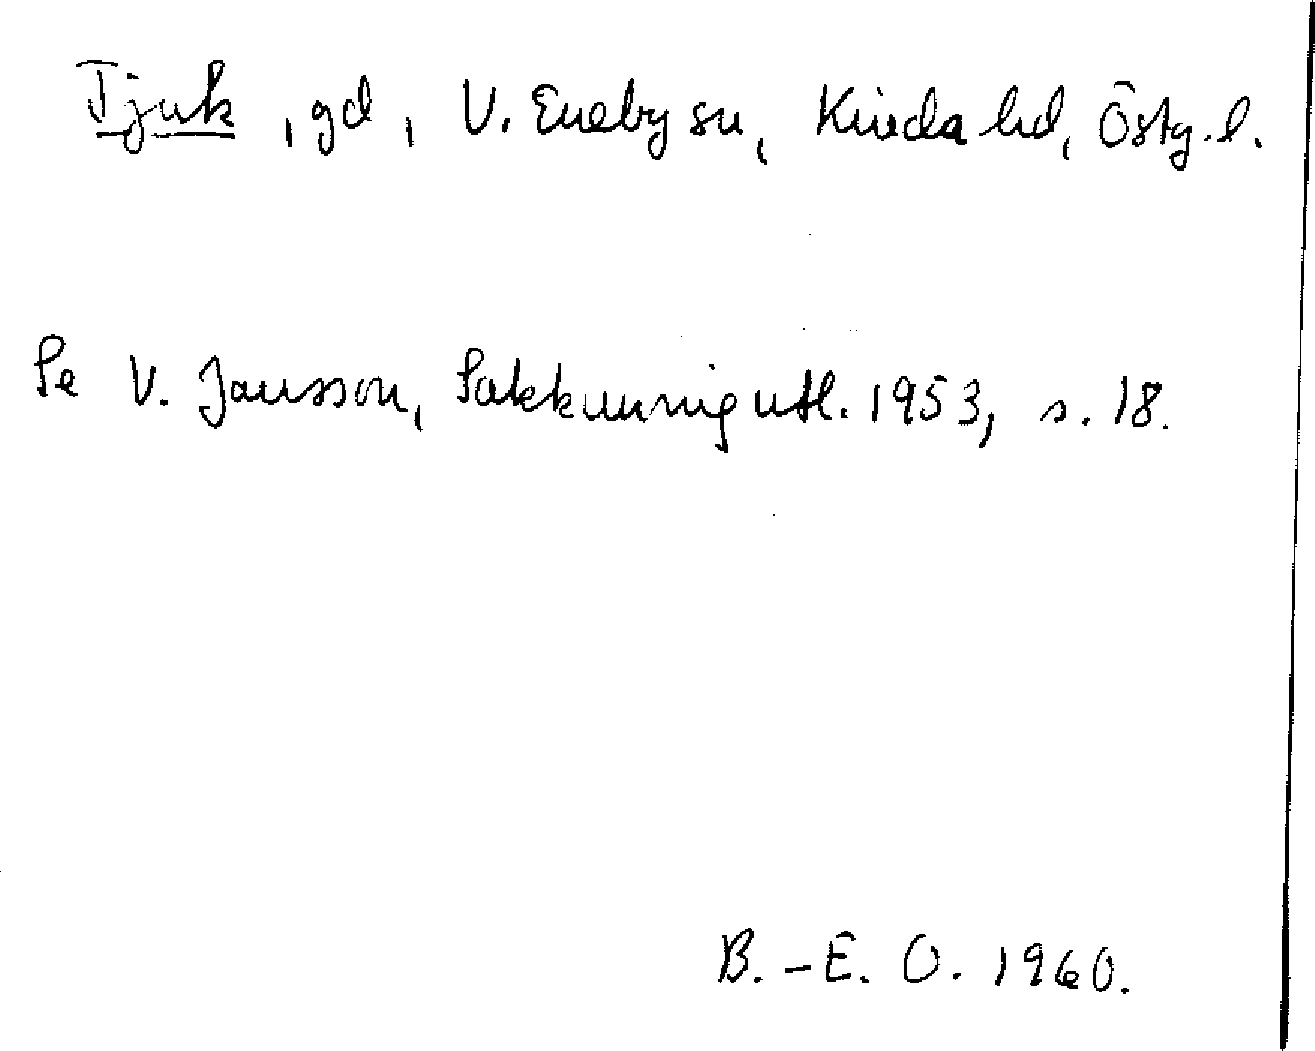 Tjuk, gd, V. Eneby sn, Kinda hd, Östg. l.
Se V. Jansson, Sakkunnigutl. 1953, s. 18.
B.-E. O. 1960.